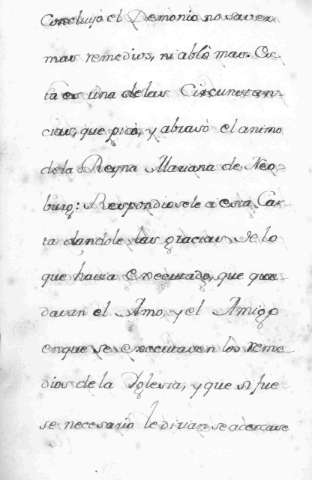 Concluyó el Demonio no saver
mas remedios, ni abló mas. Es
ta es una de las Circunstan
cias, que picó, y abrasó el animo
de la Reyna Mariana de Neo
burg: Respondiosele a esta Car
ta dandole las gracias de lo
que havia Executado, que que
davan el Amo, y el Amigo
en que se executasen los reme
dios de la Iglesia, y que si fue
se necesario le dirian se acercase